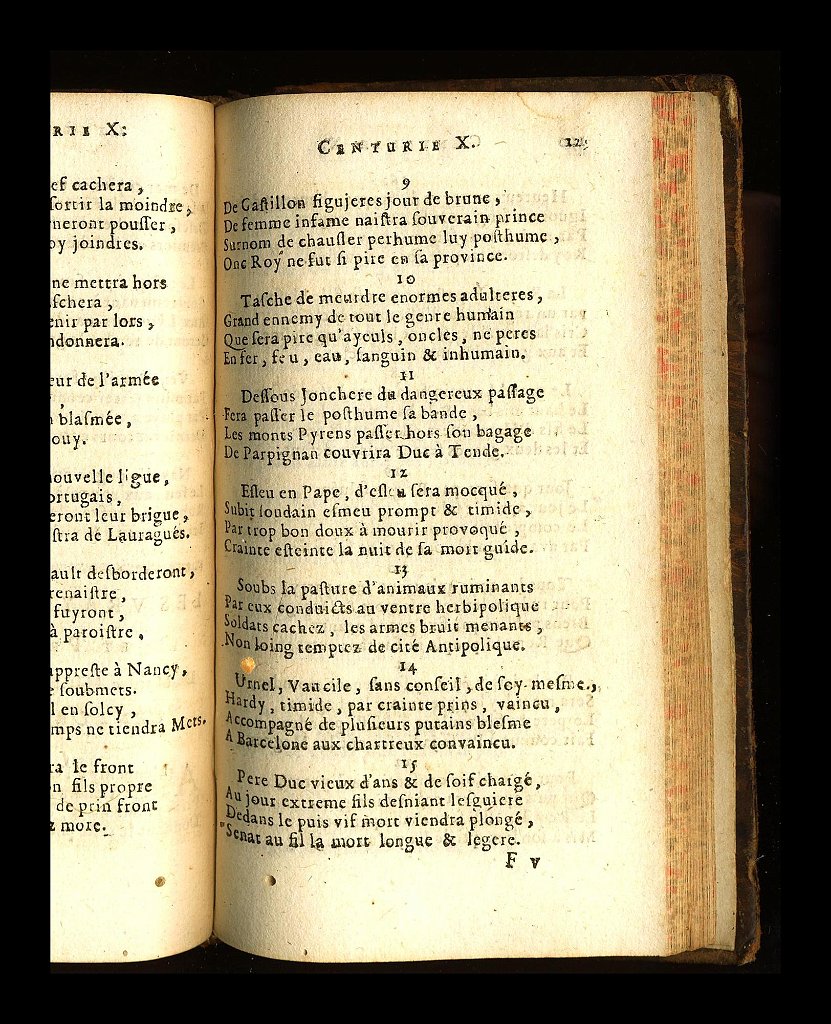 RIE X:
ef cachera,
ſortir la moindre,
neront pouſſer,
oy joindres.
ne mettra hors
ſchera,
enir par lors,
ndonnera.
eur de l'armée
,
blaſmée,
ouy.
nouvelle ligue,
ortugais,
eront leur brigue,
ſtra de Lauragués.
ault deſborderont,
renaiſtre,
fuyront,
à paroiſtre.
appreſte à Nancy,
e ſoubmets.
l en ſolcy,
emps ne tiendra Mets.
ra le front
on fils propre
de prin front
z more.
CENTURIE X.
9
De Caſtillon figujeres jour de brune,
De femme infame naiſtra ſouverain prince
Surnom de chauſſer perhume luy poſthume,
Onc Roy ne fut ſi pire en ſa province.
10
Taſche de meurdre enormes adulteres,
Grand ennemy de tout le genre humain
Que ſera pire qu'ayeuls, oncles, ne peres
En fer, feu, eau, ſanguin & inhumain.
11
Deſſous Jonchere du dangereux paſſage
Fera paſſer le poſthume ſa bande,
Les monts Pyrens paſſer hors ſon bagage
De Parpignan couvrira Duc à Tende.
12
Eſleu en Pape, d'eſleu ſera mocqué,
Subit ſoudain eſmeu prompt & timide,
Par trop bon doux à mourir provoqué,
Crainte eſteinte la nuit de ſa mort guide.
13
Soubs la paſture d'animaux ruminants
Par eux conduicts au ventre herbipolique
Soldats cachez, les armes bruit menants,
Non loing temptez de cité Antipolique.
14
Urnel, Vaucile, ſans conſeil, de ſoy-meſme,
Hardy, timide, par crainte prins, vaincu,
Accompagné de pluſieurs putains bleſme
A Barcelone aux chartreux convaincu.
15
Pere Duc vieux d'ans & de ſoif chargé,
Au jour extreme fils deſniant leſguiere
Dedans le puis vif mort viendra plongé,
Senat au fil la mort longue & legere.
F v